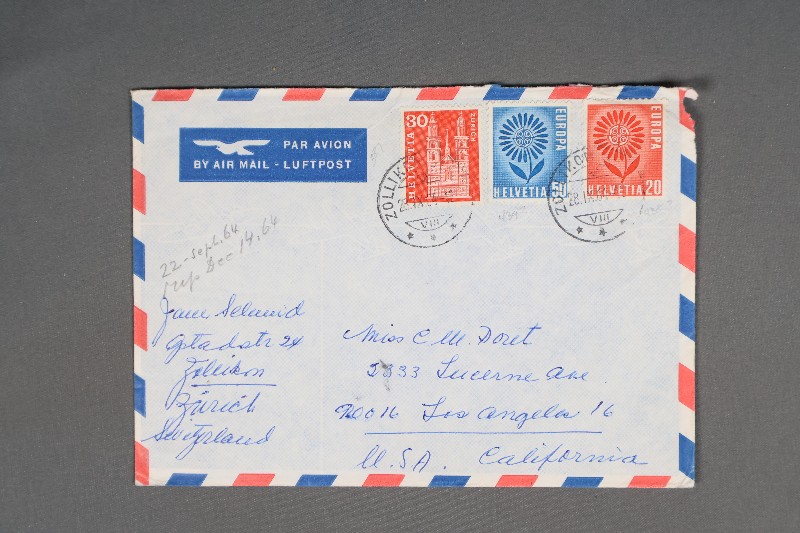 PAR AVION
BY AIR MAIL - LUFTPOST
30
HELVETIA
ZÜRICH
EUROPA
HELVETIA
EUROPA
HELVETIA 20
ZOLLIKON
VIII
ZOLLIKON
28.IX.64
VIII
22-Sept. 64
Dec 14, 64
Jane Schmid
Gstadstr 24
Zollikon
Zürich
Switzerland
Miss C. M. Doret
2333 Lucerne Ave.
90016 Los Angeles 16
U.S.A. California